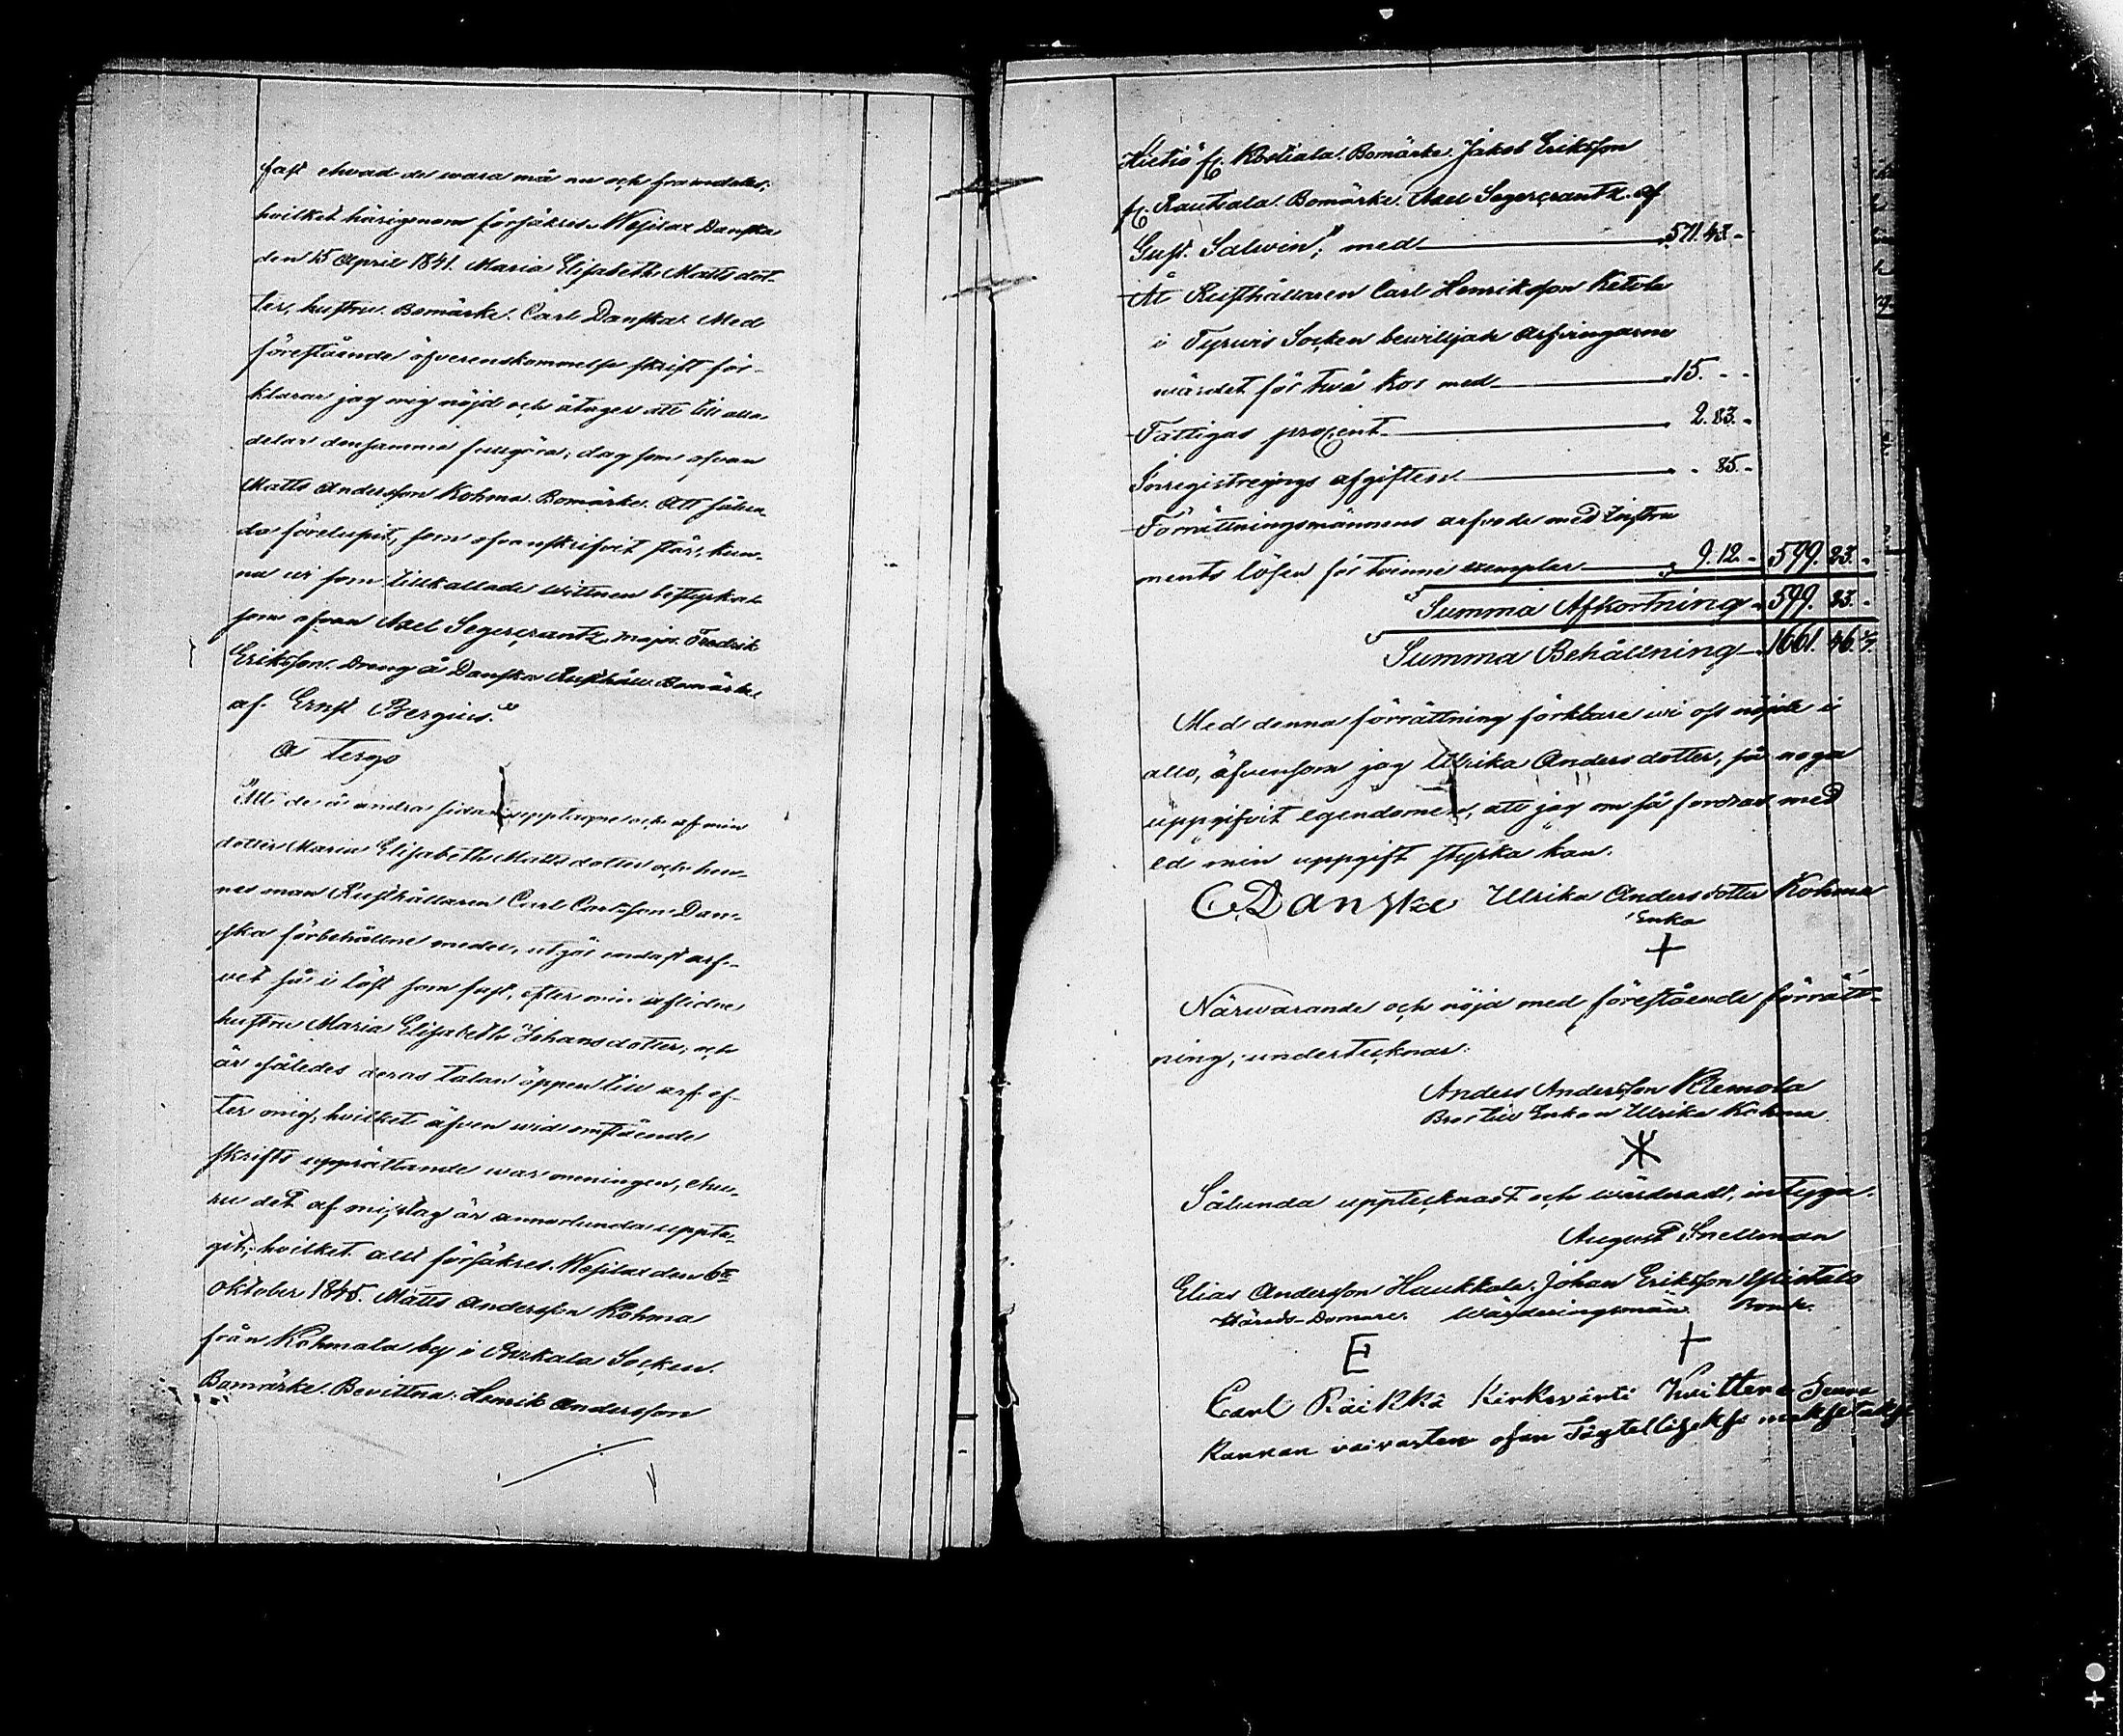 fast ehvad de wara må nu och framdeles,
hvilket härigenom försäkres. Wesilax Danska
den 15 April 1841. Maria Elisabeth Mattsdot-
ter, hustru. Bomärke. Carl Danska. Med
förestående öfverenskommelse skrift för-
klarar jag mig nöjd och åtager att till alla
delar densamma fullgöra; dag som ofvan
Matts Andersson Kohma. Bomärke. Att sålun-
da förelupit, som ofvanskrifvit står, kun-
na vi som tillkallade wittnen bestyrka
som ofvan Axel Segercrantz, major. Fredrik
Eriksson. Dreng å Danska Rusthåll. Bomärke
af. Ernst Bergius."
A Tergo
"Att de å andra sidan upptagne och af min
dotter Maria Elisabeth Mattsdotter och hen-
nes man Rusthållaren Carl Carlsson Dan-
ska förbehållne medel, utgör endast arf-
vet så i löst som fast, efter min aflidne
hustru Maria Elisabeth Johansdotter; och
är således deras talan öppen till arf ef-
ter mig, hvilket äfven wid omstående
skrifts upprättande war meningen, ehu-
ru det af misstag är annorlunda uppta-
git; hvilket allt försäkres. Wesilax den 6te
Oktober 1845. Matts Andersson Kohma
från Kohmala by i Birkala Socken.
Bomärke. Bevittna: Henrik Andersson
Hietiö fr. Rostiala. Bomärke. Jakob Eriksson
fr. Rautiala. Bomärke. Axel Segercrantz. af
Gust. Salwin"; med 571. 43. -
Åt Rusthållaren Carl Henriksson Ketola
i Tyrwis Socken bewilljade arfvingarne
wärdet för två kor med 15. - -
Fattigas procent 2. 83. -
Inregistrerings afgiften - 85. -
Förrättningsmännens arfvode med Instru
ments lösen för twenne exemplar 9. 12. - 599. 23. -
Summa Afkortning 599. 23. -
Summa Behållning 1661. 46.
Med denna förrättning förklare wi oss nöjde i
allo, äfvensom jag Ulrika Anders dotter, så noga
uppgifvit egendomen, att jag om så fordras med
ed min uppgift styrka kan.
C. Danska Ulrika Anders dotter Kohma
Enka
Närwarande och nöjd med förestående förrätt-
ning, undertecknar:
Anders Andersson Klemola
Bror till Enkan Ulrika Kohma.
Sålunda upptecknadt och wärderadt, intyga.
August Snellman
Elias Andersson Haukkala. Johan Eriksson
Härads-Domare. Wärderingsmän. Bonde.
E
Carl Räikkä